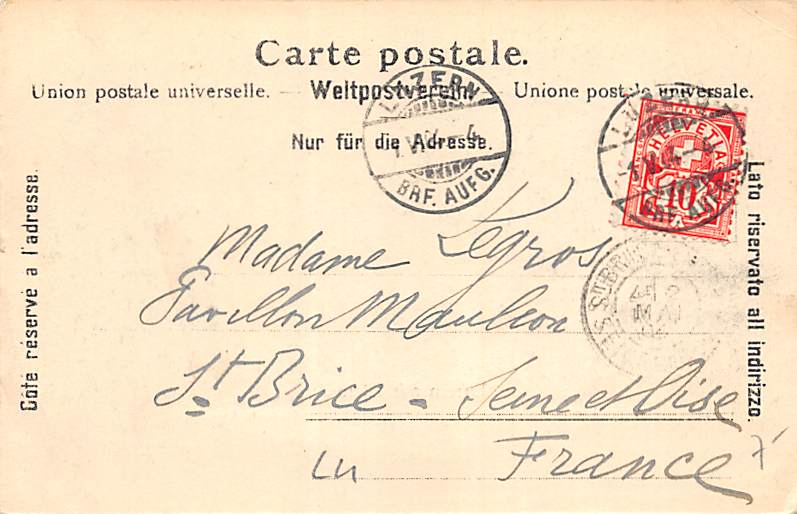 Carte postale.
Union postale universelle. — Weltpostverein. Unione postale universale.
Nur für die Adresse.
Côté réservé a l'adresse.
Lato riservato all indirizzo.
LUZERN
BRF. AUFG.
HELVETIA
10
BRF. AUFG.
Madame Legros
Pavillon Mauléon
St Brice - Seine et Oise
France